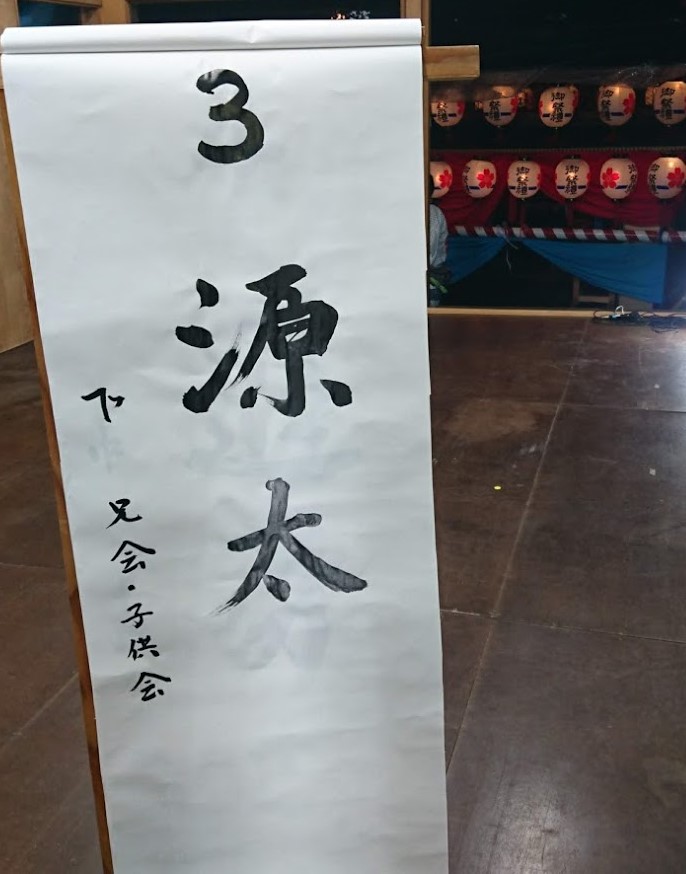 3
源太
下 兄会・子供会
御祭禮
御祭禮
御祭禮
御祭禮
御祭禮
御祭禮
御祭禮
御祭禮